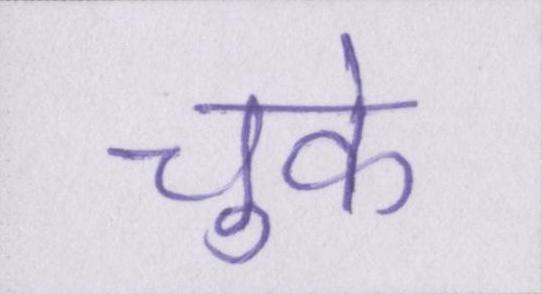 चुके